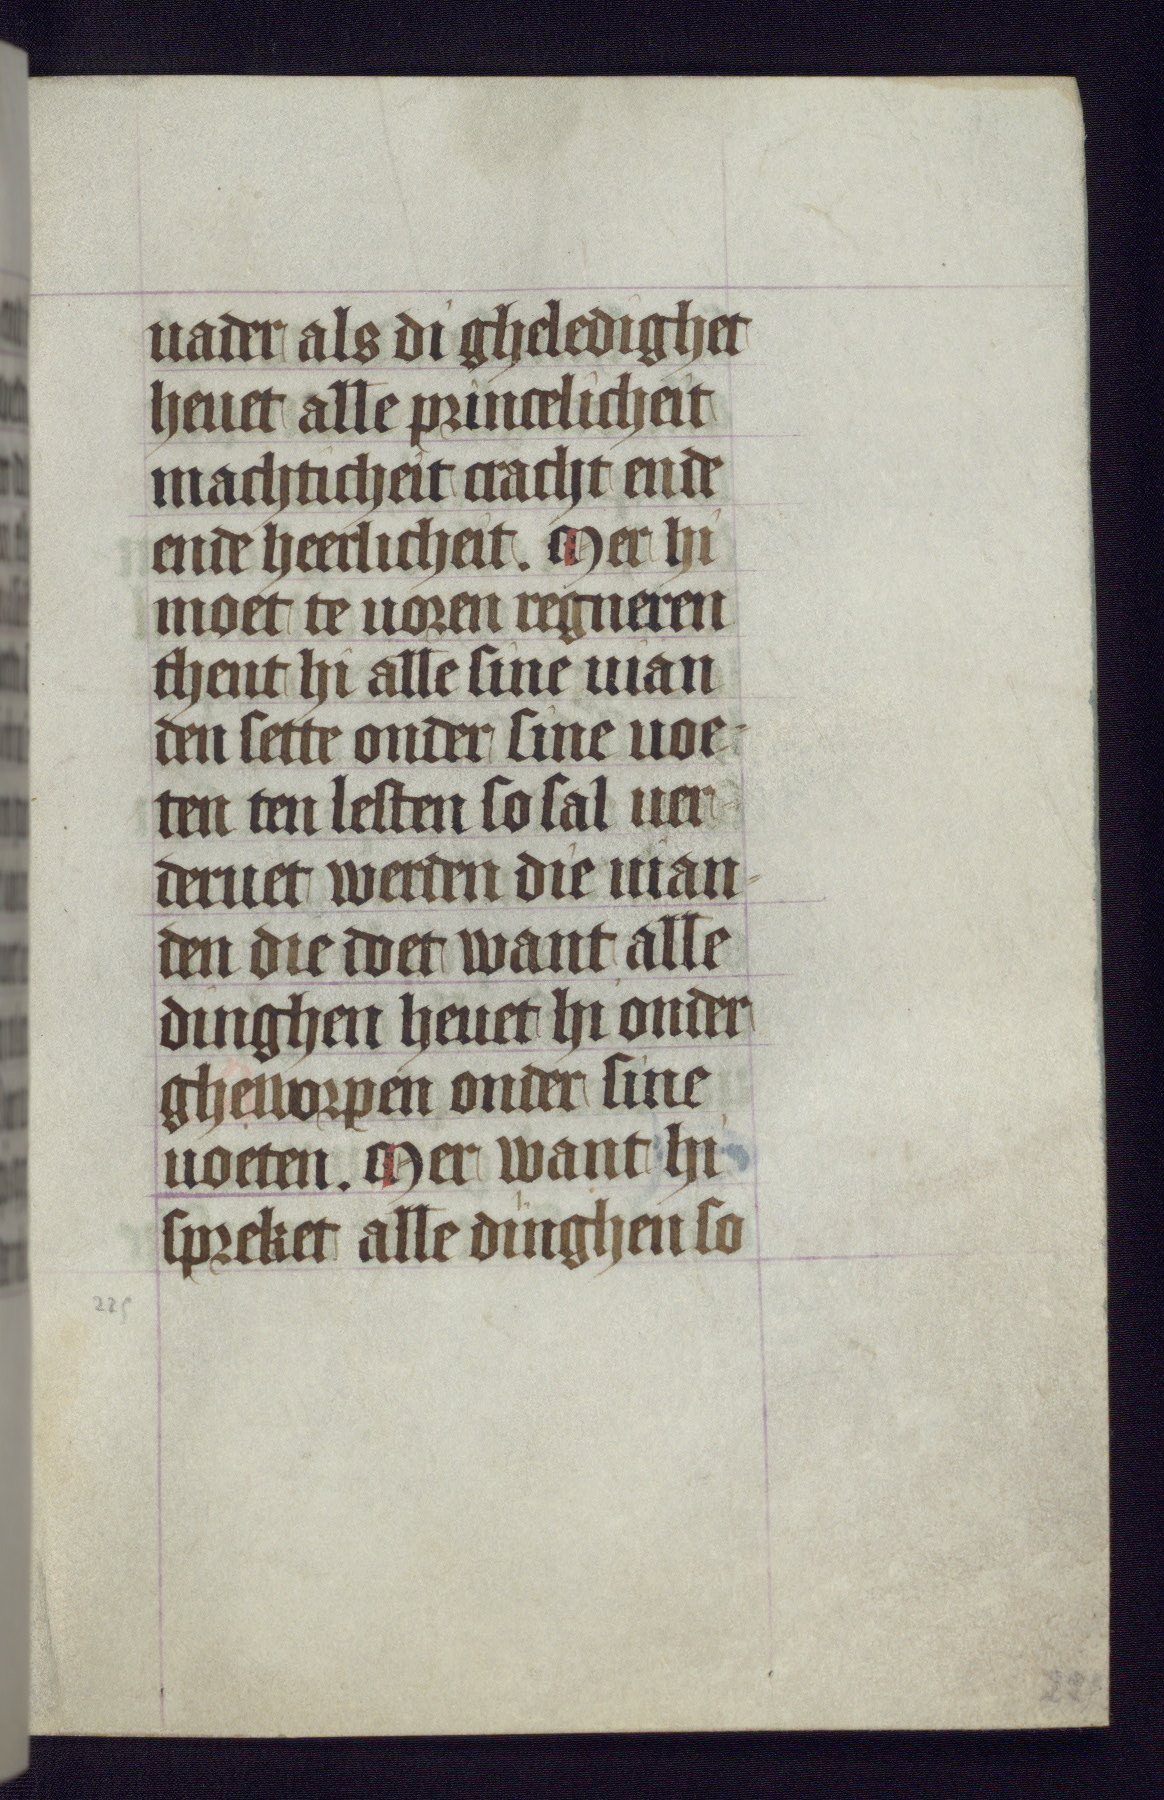 uader als di gheledighet
heuet alle princelicheit
machticheit cracht ende
ende heerlicheit. Mer hi
moet te uoren regneren
thent hi alle sine uian
den sette onder sine uoe-
ten ten lesten so sal uer
deruet werden die uian-
den die doet want alle
dinghen heuet hi onder
gheworpen onder sine
uoeten. Mer want hi
spreket alle dinghen so
225